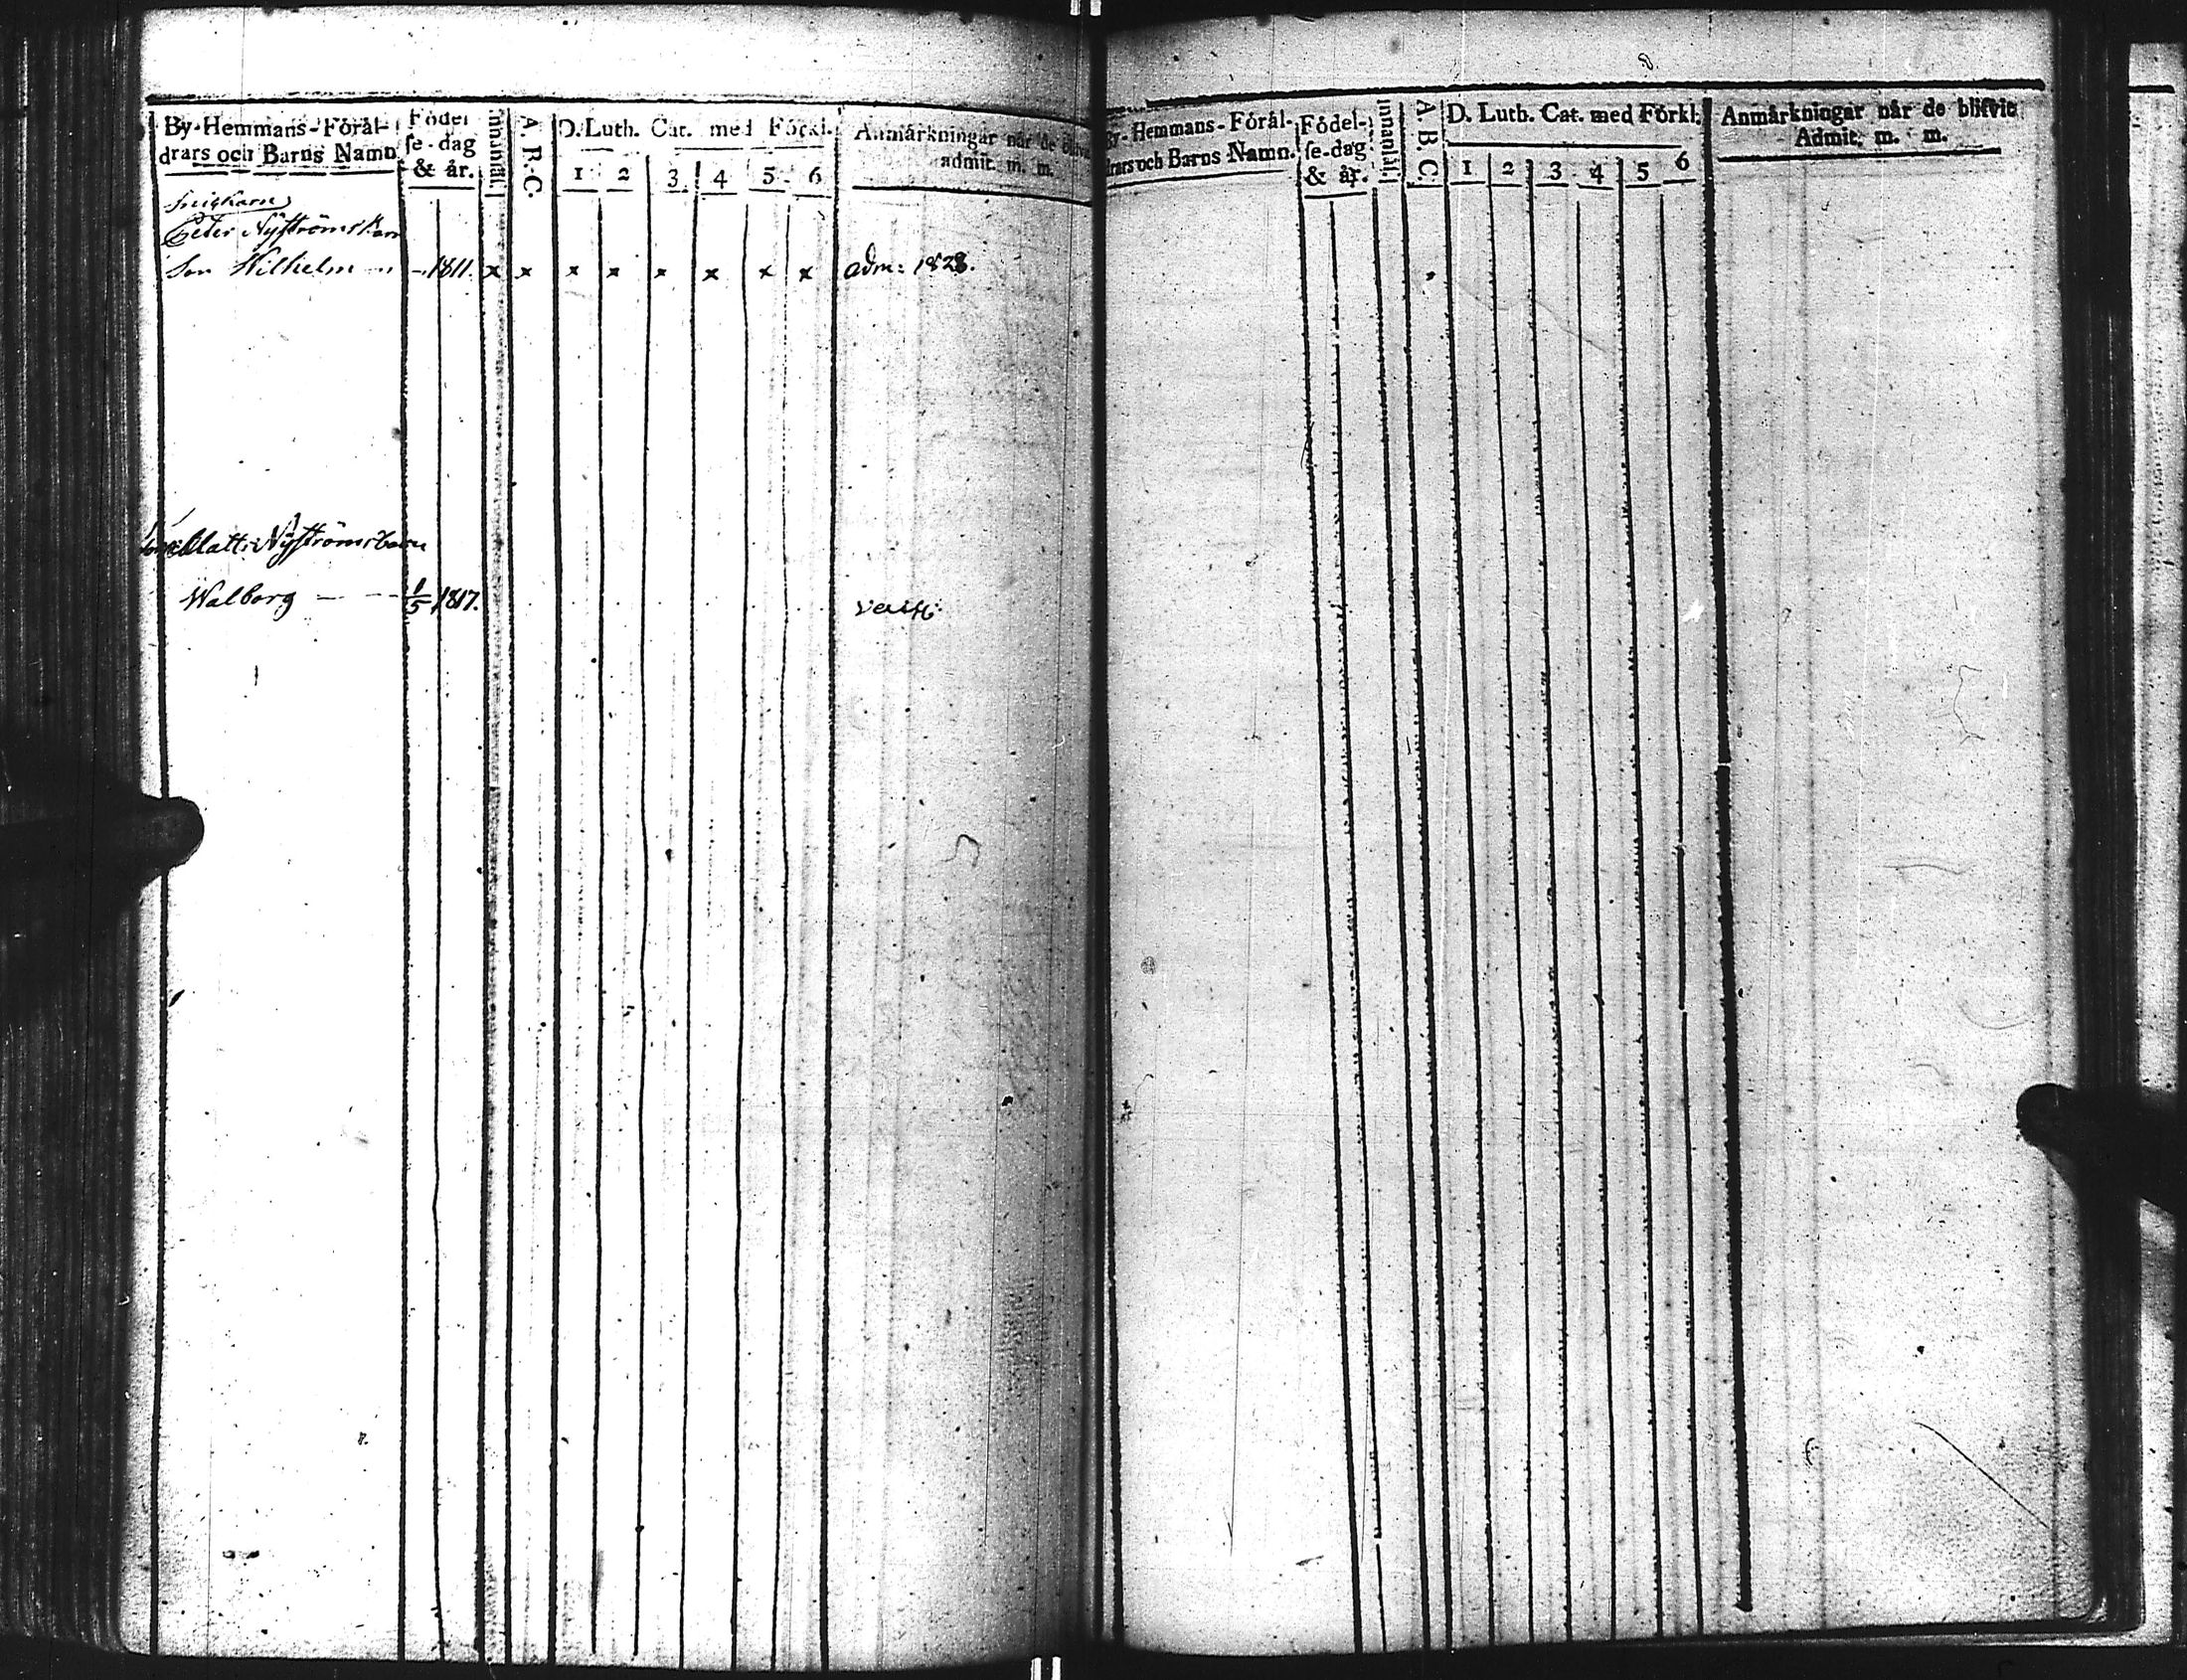 By-Hemmans-Förál-
drars och Barns Namn.
Födel
se-dag
& år.
Innanläs.
A. B. C.
D. Luth. Cat. med Förkl.
1 2 3 4 5 6
Anmärkningar när de blifvit
admit. m. m.
Peter Nyströms barn
Son Wilhelm - - 1811. x x x x x x x x adm: 1828.
Matts Nyströms barn
Walborg - - 1/5 1817.
By-Hemmans-Förál-
drars och Barns Namn.
Födel-
se-dag
& år.
Innanläs.
A B C.
D. Luth. Cat. med Förkl.
1 2 3 4 5 6
Anmärkningar når de blifvit
Admit. m. m.